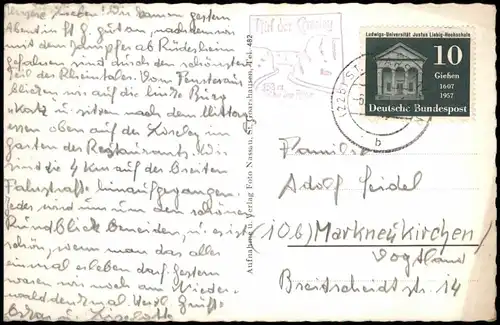 Meine Lieben! Wir kamen gestern
Abend in St G. gut an, nachdem wir
mit dem Dampfer ab Rüdesheim
gefahren sind durch den schönsten
Teil des Rheintales. Vom Fenster aus
blicken wir auf die hinte Burg
"Katz" u. sitzen nach dem Mittag
essen oben auf der Loreley im
Garten des Restaurants. Wir
sind die 4 km auf der breiten
Fahrstraße hinaufgegangen.
Jeder wird uns um den schönen
Rundblick beneiden, u. es ist
schön, wenn man das alles
einmal erleben darf. Gestern
waren wir noch am Nieder
walddenkmal. Herzl. Grüße
u. Liselotte
Aufnahme u. Verlag Foto Nassau, St. Goarshausen, Tel. 482
Ludwigs-Universität Justus Liebig-Hochschule
10
Gießen
1607
1957
Deutsche Bundespost
b
Familie
Adolf Seidel
(10b) Markneukirchen
Vogtland
Breitscheidstr. 14